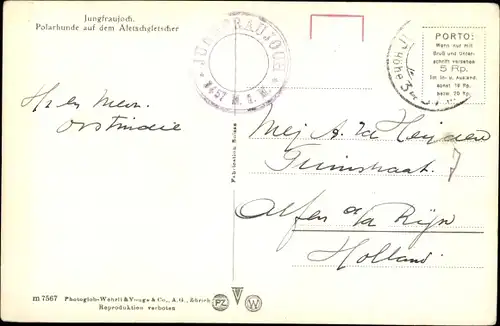 Jungfraujoch.
Polarhunde auf dem Aletschgletscher
JUNGFRAUJOCH
3457 M. Ü. M.
PORTO:
Wenn nur mit
Gruß und Unter-
schrift versehen
5 Rp.
Im In- u. Ausland
sonst 10 Rp.
bezw. 20 Rp.
Mej A. v/d Heijden
Tuinstraat. 7
Alfen a/d Rijn
Holland.
Fabrication Suisse
m 7567 Photoglob-Wehrli & Vouga & Co., A. G., Zürich
Reproduktion verboten
PZ
W